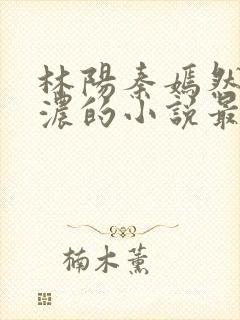 林陽秦嫣然
濃的小說最
楠木薰